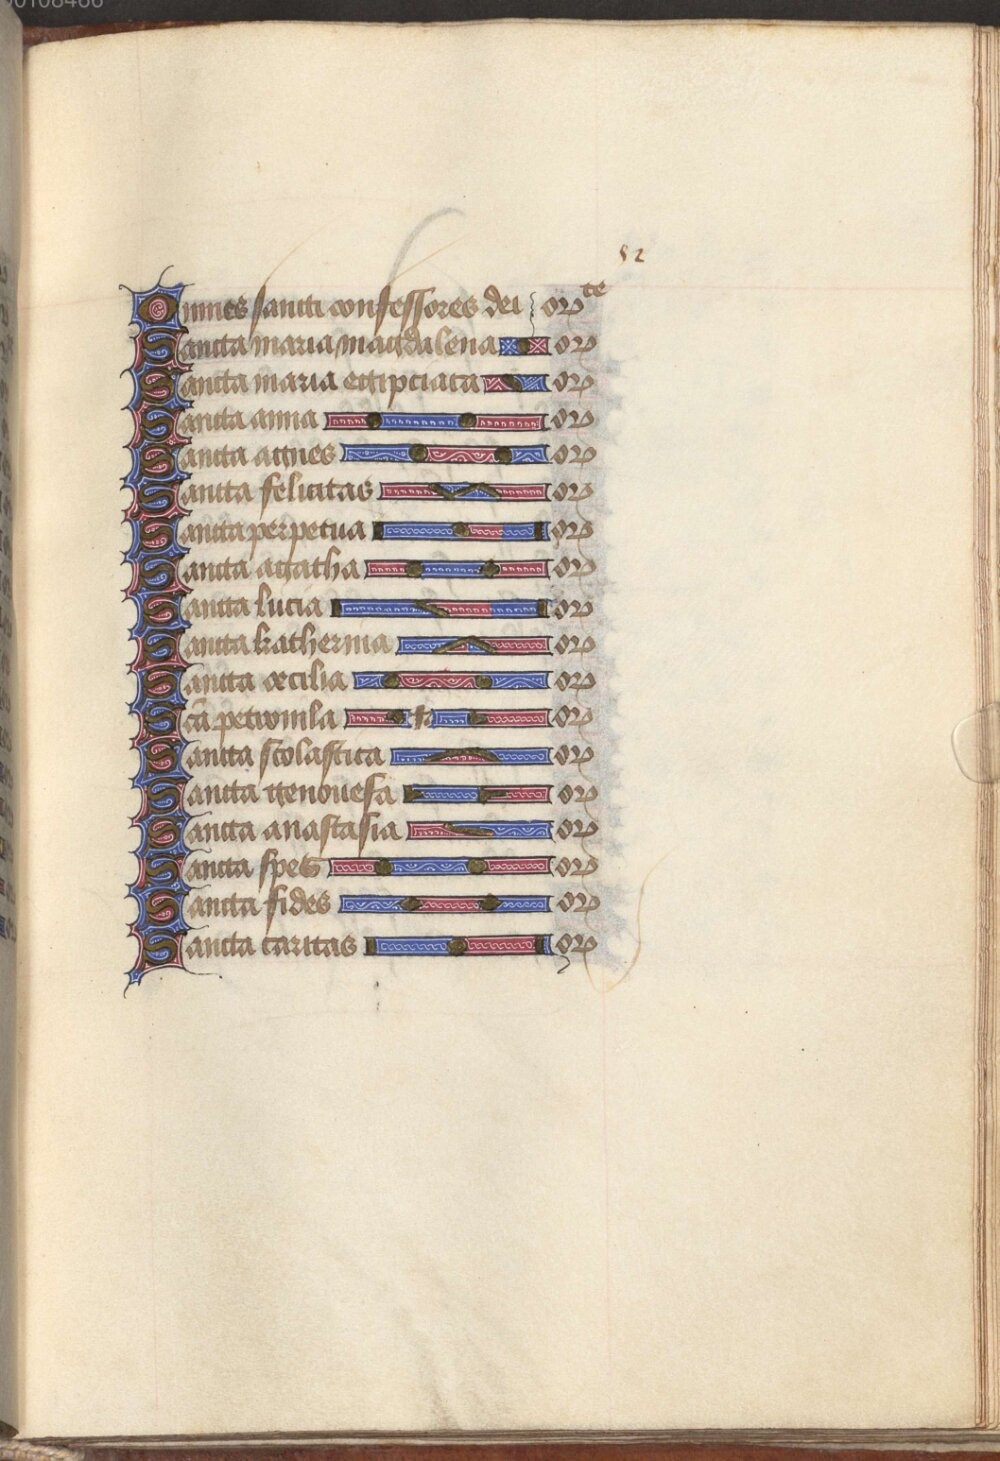 00108466
52
Omnes sancti confessores dei orate
Sancta maria magdalena or
Sancta maria egipciaca or
Sancta anna or
Sancta agnes or
Sancta felicitas or
Sancta perpetua or
Sancta agatha or
Sancta lucia or
Sancta katherina or
Sancta cecilia or
Sca petronilla or
Sancta scolastica or
Sancta genouefa or
Sancta anastasia or
Sancta spes or
Sancta fides or
Sancta caritas or